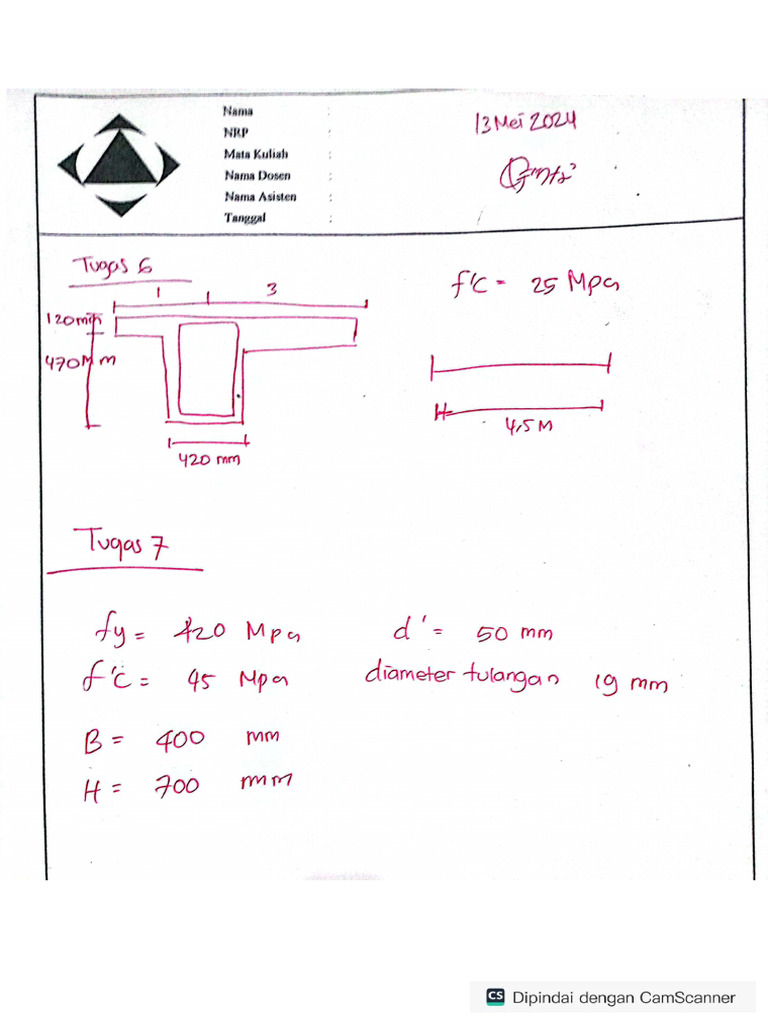 Nama :
NRP :
Mata Kuliah :
Nama Dosen :
Nama Asisten :
Tanggal :
13 Mei 2024
Tugas 6
1 3
120 mm
470 Mm
420 mm
f'c = 25 Mpa
H=
4,5 M
Tugas 7
fy = 420 Mpa
f'c = 45 Mpa
B = 400 mm
H = 700 mm
d' = 50 mm
diameter tulangan 19 mm
CS Dipindai dengan CamScanner